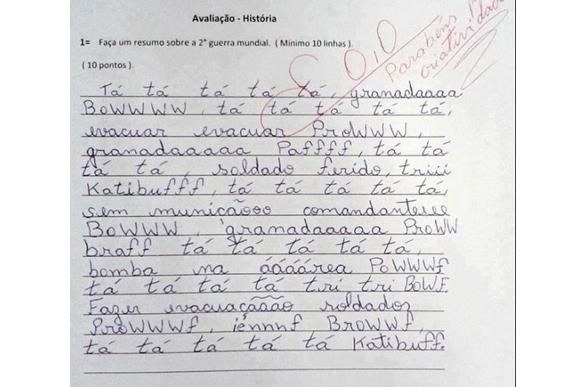 Avaliação - História
1= Faça um resumo sobre a 2° guerra mundial. ( Minimo 10 linhas ).
( 10 pontos ).
0,0
Parabéns p/
criatividade
Tá tá tá tá tá, granadaaaa
BoWWWW, tá tá tá tá tá,
evacuar evacuar ProWWW,
granadaaaaa Paffff, tá tá
tá tá, soldado ferido, triii
Katibufff, tá tá tá tá tá,
sem muniçãooo comandanteeee
BoWWW, granadaaaaa ProWW
braff tá tá tá tá tá,
bomba na áááárea PoWWWf
tá tá tá tá tri tri BoWF.
Fazer evacuaçãããão soldadoz
ProWWWf, iénnnf, BroWWf,
tá tá tá tá tá Katibuff.